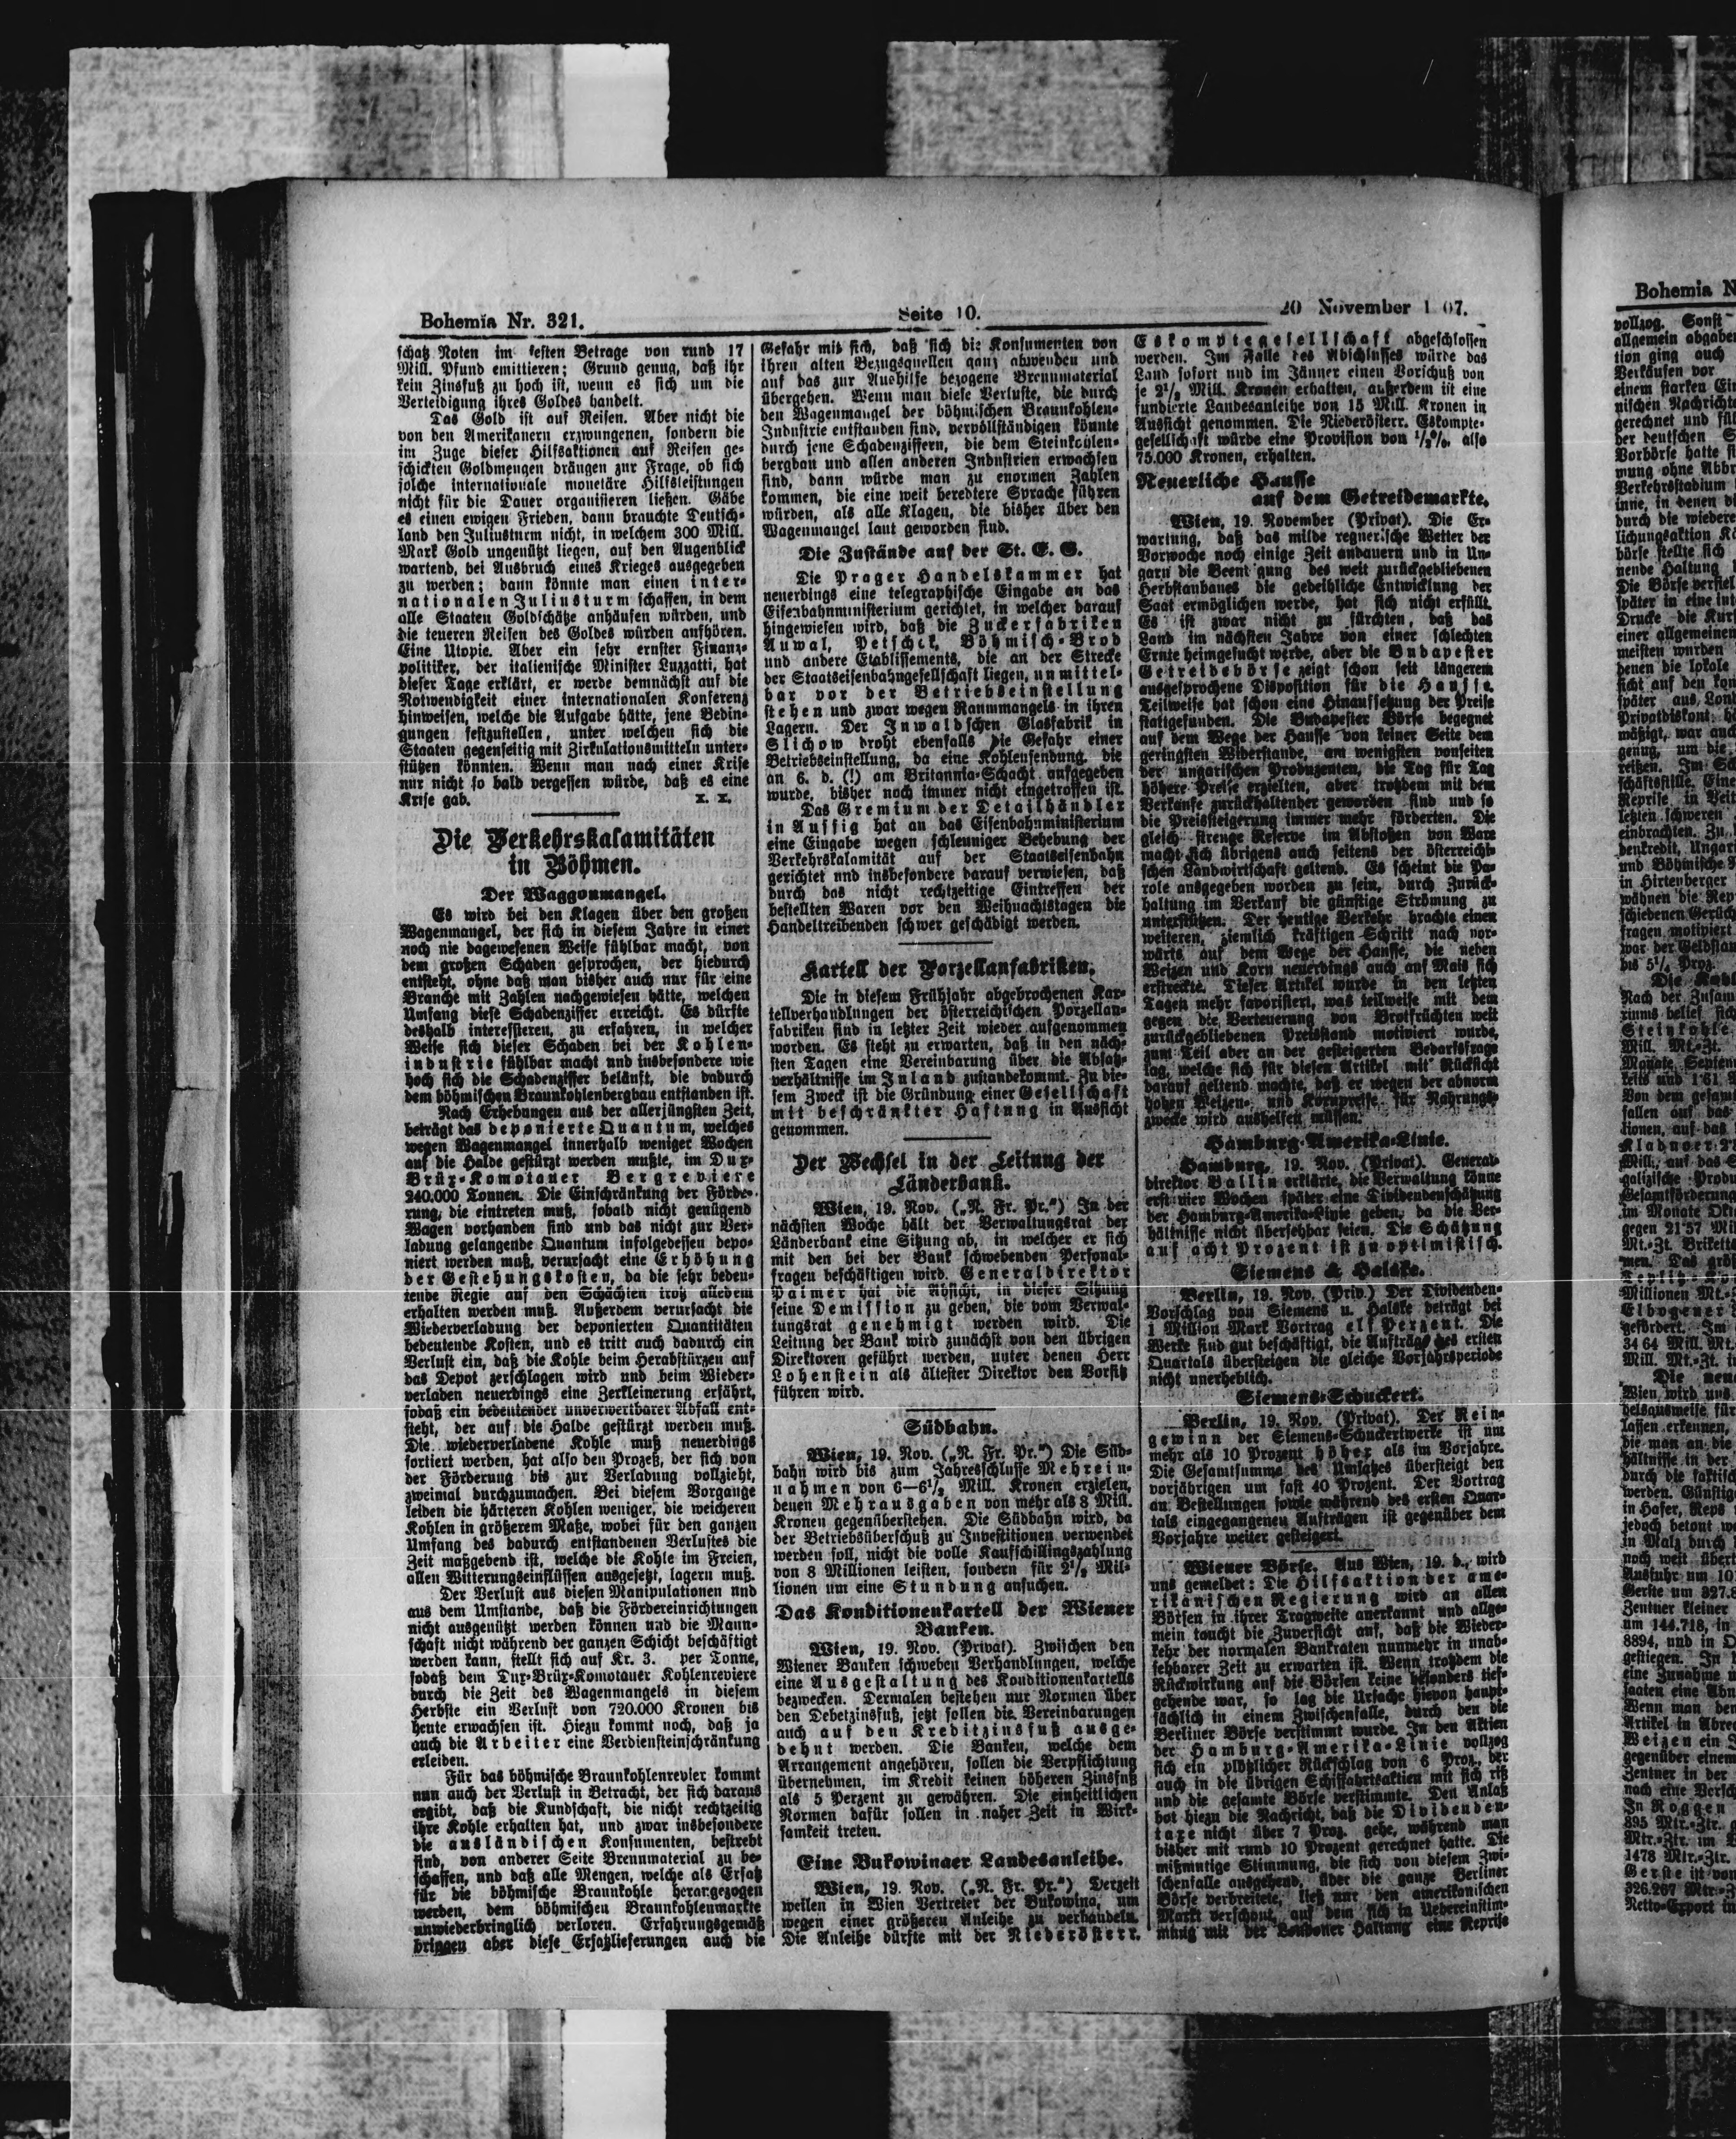 Bohemia Nr. 321.
Seite 10.
20 November 1 07.
schatz Noten im festen Betrage von rund 17
Mill. Pfund emittieren; Grund genug, daß ihr
kein Zinsfuß zu hoch ist, wenn es sich um die
Verteidigung ihres Goldes handelt.
Das Gold ist auf Reisen. Aber nicht die
von den Amerikanern erzwungenen, sondern die
im Zuge dieser Hilfsaktionen auf Reisen ge-
schickten Goldmengen drängen zur Frage, ob sich
solche internationale monetäre Hilfsleistungen
nicht für die Dauer organisieren ließen. Gäbe
es einen ewigen Frieden, dann brauchte Deutsch-
land den Juliusturm nicht, in welchem 300 Mill.
Mark Gold ungenützt liegen, auf den Augenblick
wartend, bei Ausbruch eines Krieges ausgegeben
zu werden; dann könnte man einen inter-
nationalen Juliusturm schaffen, in dem
alle Staaten Goldschätze anhäufen würden, und
die teueren Reisen des Goldes würden aufhören.
Eine Utopie. Aber ein sehr ernster Finanz-
politiker, der italienische Minister Luzzatti, hat
dieser Tage erklärt, er werde demnächst auf die
Notwendigkeit einer internationalen Konferenz
hinweisen, welche die Aufgabe hätte, jene Bedin-
gungen festzustellen, unter welchen sich die
Staaten gegenseitig mit Zirkulationsmitteln unter-
stützen könnten. Wenn man nach einer Krise
nur nicht so bald vergessen würde, daß es eine
Krise gab. x. x.
Die Verkehrskalamitäten
in Böhmen.
Der Waggonmangel.
Es wird bei den Klagen über den großen
Wagenmangel, der sich in diesem Jahre in einer
noch nie dagewesenen Weise fühlbar macht, von
dem großen Schaden gesprochen, der hiedurch
entsteht, ohne daß man bisher auch nur für eine
Branche mit Zahlen nachgewiesen hätte, welchen
Umfang diese Schadenziffer erreicht. Es dürfte
deshalb interessieren, zu erfahren, in welcher
Weise sich dieser Schaden bei der Kohlen-
industrie fühlbar macht und insbesondere wie
hoch sich die Schadenziffer beläuft, die dadurch
dem böhmischen Braunkohlenbergbau entstanden ist.
Nach Erhebungen aus der allerjüngsten Zeit,
beträgt das deponierte Quantum, welches
wegen Wagenmangel innerhalb weniger Wochen
auf die Halde gestürzt werden mußte, im Dux-
Brüx-Komotauer Bergreviere
240.000 Tonnen. Die Einschränkung der Förde-
rung, die eintreten muß, sobald nicht genügend
Wagen vorhanden sind und das nicht zur Ver-
ladung gelangende Quantum infolgedessen depo-
niert werden muß, verursacht eine Erhöhung
der Gestehungskosten, da die sehr bedeu-
tende Regie auf den Schächten trotz alledem
erhalten werden muß. Außerdem verursacht die
Wiederverladung der deponierten Quantitäten
bedeutende Kosten, und es tritt auch dadurch ein
Verlust ein, daß die Kohle beim Herabstürzen auf
das Depot zerschlagen wird und beim Wieder-
verladen neuerdings eine Zerkleinerung erfährt,
sodaß ein bedeutender unverwertbarer Abfall ent-
steht, der auf die Halde gestürzt werden muß.
Die wiederverladene Kohle muß neuerdings
sortiert werden, hat also den Prozeß, der sich von
der Förderung bis zur Verladung vollzieht,
zweimal durchzumachen. Bei diesem Vorgange
leiden die härteren Kohlen weniger, die weicheren
Kohlen in größerem Maße, wobei für den ganzen
Umfang des dadurch entstandenen Verlustes die
Zeit maßgebend ist, welche die Kohle im Freien,
allen Witterungseinflüssen ausgesetzt, lagern muß.
Der Verlust aus diesen Manipulationen und
aus dem Umstande, daß die Fördereinrichtungen
nicht ausgenützt werden können und die Mann-
schaft nicht während der ganzen Schicht beschäftigt
werden kann, stellt sich auf Kr. 3. per Tonne,
sodaß dem Dux-Brüx-Komotauer Kohlenreviere
durch die Zeit des Wagenmangels in diesem
Herbste ein Verlust von 720.000 Kronen bis
heute erwachsen ist. Hiezu kommt noch, daß ja
auch die Arbeiter eine Verdiensteinschränkung
erleiden.
Für das böhmische Braunkohlenrevier kommt
nun auch der Verlust in Betracht, der sich daraus
ergibt, daß die Kundschaft, die nicht rechtzeitig
ihre Kohle erhalten hat, und zwar insbesondere
die ausländischen Konsumenten, bestrebt
sind, von anderer Seite Brennmaterial zu be-
schaffen, und daß alle Mengen, welche als Ersatz
für die böhmische Braunkohle herangezogen
werden, dem böhmischen Braunkohlenmarkte
unwiederbringlich verloren. Erfahrungsgemäß
bringen aber diese Ersatzlieferungen auch die
Gefahr mit sich, daß sich die Konsumenten von
ihren alten Bezugsquellen ganz abwenden und
auf das zur Aushilfe bezogene Brennmaterial
übergehen. Wenn man diese Verluste, die durch
den Wagenmangel der böhmischen Braunkohlen-
Industrie entstanden sind, vervollständigen könnte
durch jene Schadenziffern, die dem Steinkohlen-
bergbau und allen anderen Industrien erwachsen
sind, dann würde man zu enormen Zahlen
kommen, die eine weit beredtere Sprache führen
würden, als alle Klagen, die bisher über den
Wagenmangel laut geworden sind.
Die Zustände auf der St. E. G.
Die Prager Handelskammer hat
neuerdings eine telegraphische Eingabe an das
Eisenbahnministerium gerichtet, in welcher darauf
hingewiesen wird, daß die Zuckerfabriken
Auwal, Petschek, Böhmisch-Brod
und andere Etablissements, die an der Strecke
der Staatseisenbahngesellschaft liegen, unmittel-
bar vor der Betriebseinstellung
stehen und zwar wegen Raummangels in ihren
Lagern. Der Inwaldschen Glasfabrik in
Slichow droht ebenfalls die Gefahr einer
Betriebseinstellung, da eine Kohlensendung, die
an 6. d. (!) am Britannia-Schacht aufgegeben
wurde, bisher noch immer nicht eingetroffen ist.
Das Gremium der Detailhändler
in Aussig hat an das Eisenbahnministerium
eine Eingabe wegen schleuniger Behebung der
Verkehrskalamität auf der Staatseisenbahn
gerichtet und insbesondere darauf verwiesen, daß
durch das nicht rechtzeitige Eintreffen der
bestellten Waren vor den Weihnachtstagen die
Handeltreibenden schwer geschädigt werden.
Kartell der Porzellanfabriken.
Die in diesem Frühjahr abgebrochenen Kar-
tellverhandlungen der österreichischen Porzellan-
fabriken sind in letzter Zeit wieder aufgenommen
worden. Es steht zu erwarten, daß in den näch-
sten Tagen eine Vereinbarung über die Absatz-
verhältnisse im Inland zustandekommt. Zu die-
sem Zweck ist die Gründung einer Gesellschaft
mit beschränkter Haftung in Aussicht
genommen.
Der Wechsel in der Leitung der
Länderbank.
Wien, 19. Nov. („N. Fr. Pr.“) In der
nächsten Woche hält der Verwaltungsrat der
Länderbank eine Sitzung ab, in welcher er sich
mit den bei der Bank schwebenden Personal-
fragen beschäftigen wird. Generaldirektor
Palmer hat die Absicht, in dieser Sitzung
seine Demission zu geben, die vom Verwal-
tungsrat genehmigt werden wird. Die
Leitung der Bank wird zunächst von den übrigen
Direktoren geführt werden, unter denen Herr
Lohenstein als ältester Direktor den Vorsitz
führen wird.
Südbahn.
Wien, 19. Nov. („N. Fr. Pr.“) Die Süd-
bahn wird bis zum Jahresschlusse Mehrein-
nahmen von 6—6½ Mill. Kronen erzielen,
denen Mehrausgaben von mehr als 8 Mill.
Kronen gegenüberstehen. Die Südbahn wird, da
der Betriebsüberschuß zu Investitionen verwendet
werden soll, nicht die volle Kaufschillingszahlung
von 8 Millionen leisten, sondern für 2½ Mil-
lionen um eine Stundung ansuchen.
Das Konditionenkartell der Wiener
Banken.
Wien, 19. Nov. (Privat). Zwischen den
Wiener Banken schweben Verhandlungen, welche
eine Ausgestaltung des Konditionenkartells
bezwecken. Dermalen bestehen nur Normen über
den Debetzinsfuß, jetzt sollen die Vereinbarungen
auch auf den Kreditzinsfuß ausge-
dehnt werden. Die Banken, welche dem
Arrangement angehören, sollen die Verpflichtung
übernehmen, im Kredit keinen höheren Zinsfuß
als 5 Perzent zu gewähren. Die einheitlichen
Normen dafür sollen in naher Zeit in Wirk-
samkeit treten.
Eine Bukowinaer Landesanleihe.
Wien, 19. Nov. („N. Fr. Pr.“) Derzeit
weilen in Wien Vertreter der Bukowina, um
wegen einer größeren Anleihe zu verhandeln.
Die Anleihe dürfte mit der Niederösterr.
Eskomptegesellschaft abgeschlossen
werden. Im Falle des Abschlusses würde das
Land sofort und im Jänner einen Vorschuß von
je 2½ Mill. Kronen erhalten, außerdem ist eine
fundierte Landesanleihe von 15 Mill. Kronen in
Aussicht genommen. Die Niederösterr. Eskompte-
gesellschaft würde eine Provision von ½%, also
75.000 Kronen, erhalten.
Neuerliche Hausse
auf dem Getreidemarkte.
Wien, 19. November (Privat). Die Er-
wartung, daß das milde regnerische Wetter der
Vorwoche noch einige Zeit andauern und in Un-
garn die Beent gung des weit zurückgebliebenen
Herbstanbaues die gedeihliche Entwicklung der
Saat ermöglichen werde, hat sich nicht erfüllt.
Es ist zwar nicht zu fürchten, daß das
Land im nächsten Jahre von einer schlechten
Ernte heimgesucht werde, aber die Budapester
Getreidebörse zeigt schon seit längerem
ausgesprochene Disposition für die Hausse.
Teilweise hat schon eine Hinaufsetzung der Preise
stattgefunden. Die Budapester Börse begegnet
auf dem Wege der Hausse von keiner Seite dem
geringsten Widerstande, am wenigsten vonseiten
der ungarischen Produzenten, die Tag für Tag
höhere Preise erzielten, aber trotzdem mit dem
Verkaufe zurückhaltender geworden sind und so
die Preissteigerung immer mehr förderten. Die
gleich strenge Reserve im Abstoßen von Ware
macht sich übrigens auch seitens der österreichi-
schen Landwirtschaft geltend. Es scheint die Pa-
role ausgegeben worden zu sein, durch Zurück-
haltung im Verkauf die günstige Strömung zu
unterstützen. Der heutige Verkehr brachte einen
weiteren, ziemlich kräftigen Schritt nach vor-
wärts auf dem Wege der Hausse, die neben
Weizen und Korn neuerdings auch auf Mais sich
erstreckte. Dieser Artikel wurde in den letzten
Tagen mehr favorisiert, was teilweise mit dem
gegen die Verteuerung von Brotfrüchten weit
zurückgebliebenen Preisstand motiviert wurde,
zum Teil aber an der gesteigerten Bedarfsfrage
lag, welche sich für diesen Artikel mit Rücksicht
darauf geltend machte, daß er wegen der abnorm
hohen Weizen- und Kornpreise für Nahrungs-
zwecke wird aushelfen müssen.
Hamburg-Amerika-Linie.
Hamburg, 19. Nov. (Privat). General-
direktor Ballin erklärte, die Verwaltung könne
erst vier Wochen später eine Dividendenschätzung
der Hamburg-Amerika-Linie geben, da die Ver-
hältnisse nicht übersehbar seien. Die Schätzung
auf acht Prozent ist zu optimistisch.
Siemens & Halske.
Berlin, 19. Nov. (Priv.) Der Dividenden-
Vorschlag von Siemens u. Halske beträgt bei
1 Million Mark Vortrag elf Perzent. Die
Werke sind gut beschäftigt, die Aufträge des ersten
Quartals übersteigen die gleiche Vorjahrsperiode
nicht unerheblich.
Siemens-Schuckert.
Berlin, 19. Nov. (Privat). Der Rein-
gewinn der Siemens-Schuckertwerke ist um
mehr als 10 Prozent höher als im Vorjahre.
Die Gesamtsumme des Umsatzes übersteigt den
vorjährigen um fast 40 Prozent. Der Vortrag
an Bestellungen sowie während des ersten Quar-
tals eingegangenen Aufträgen ist gegenüber dem
Vorjahre weiter gesteigert.
Wiener Börse. Aus Wien, 19. d., wird
uns gemeldet: Die Hilfsaktion der ame-
rikanischen Regierung wird an allen
Börsen in ihrer Tragweite anerkannt und allge-
mein taucht die Zuversicht auf, daß die Wieder-
kehr der normalen Bankraten nunmehr in unab-
sehbarer Zeit zu erwarten ist. Wenn trotzdem die
Rückwirkung auf die Börsen keine besonders tief-
gehende war, so lag die Ursache hievon haupt-
sächlich in einem Zwischenfalle, durch den die
Berliner Börse verstimmt wurde. In den Aktien
der Hamburg-Amerika-Linie vollzog
sich ein plötzlicher Rückschlag von 6 Proz., der
auch in die übrigen Schiffahrtsaktien mit sich riß
und die gesamte Börse verstimmte. Den Anlaß
bot hiezu die Nachricht, daß die Dividenden-
taxe nicht über 7 Proz. gehe, während man
bisher mit rund 10 Prozent gerechnet hatte. Die
mißmutige Stimmung, die sich von diesem Zwi-
schenfalle ausgehend, über die ganze Berliner
Börse verbreitete, ließ nur den amerikanischen
Markt verschont, auf dem sich in Uebereinstim-
mung mit der Londoner Haltung eine Reprise
Bohemia N
vollzog. Sonst
allgemein abgabe
tion ging auch
Verkäufen vor
einem starken
nischen Nachricht
gerechnet und
der deutschen
Vorbörse hatte
mung ohne
Verkehrsstadium
inne, in denen
durch die wiedere
lichungsaktion
börse stellte sich
nende Haltung
Die Börse verfiel
später in eine
Drucke die
einer allgemeinen
meisten wurden
denen die lokale
sicht auf den
später aus
Privatdiskont
mäßigt, war auch
genug, um die
reißen. Im
schäftsstille.
Reprise in
letzten schweren
einbrachten. Zu
denkredit,
und Böhmische
in Hirtenberger
wähnen die
schiedenen
fragen motiviert
war der
bis 5¼ Proz.
Nach der
riums belief sich
Steinkohle
Mill. Mt.-Zt.
Monate
ketts und 1·61
Von dem
fallen auf das
tionen, auf das
Kladnoer
Mill., auf das
galizische
Gesamtförderung
im Monate
gegen 21·57
Mt.-Zt. Briketts
men. Das
Millionen Mt.-
Elbogener
gefördert. Im
34 64 Mill. Mt.
Mill. Mt.-Zt. in
Die neue
Wien wird uns
lassen erkennen,
die man an die
hältnisse in der
durch die
werden.
in Hafer, Reps
jedoch betont
in Malz durch
noch weit
Ausfuhr um
Gerste um 327.
Zentner kleiner
um 144.718, in
8894, und in
gestiegen. In
eine Zunahme
saaten eine
Wenn man den
Artikel in
Weizen ein
gegenüber einem
Zentner in der
nach eine
In Roggen
895 Mtr.-Ztr.
Mtr.-Ztr. im
1478 Mtr.-Ztr.
Gerste ist von
326.267 Mtr.-
Netto-Export